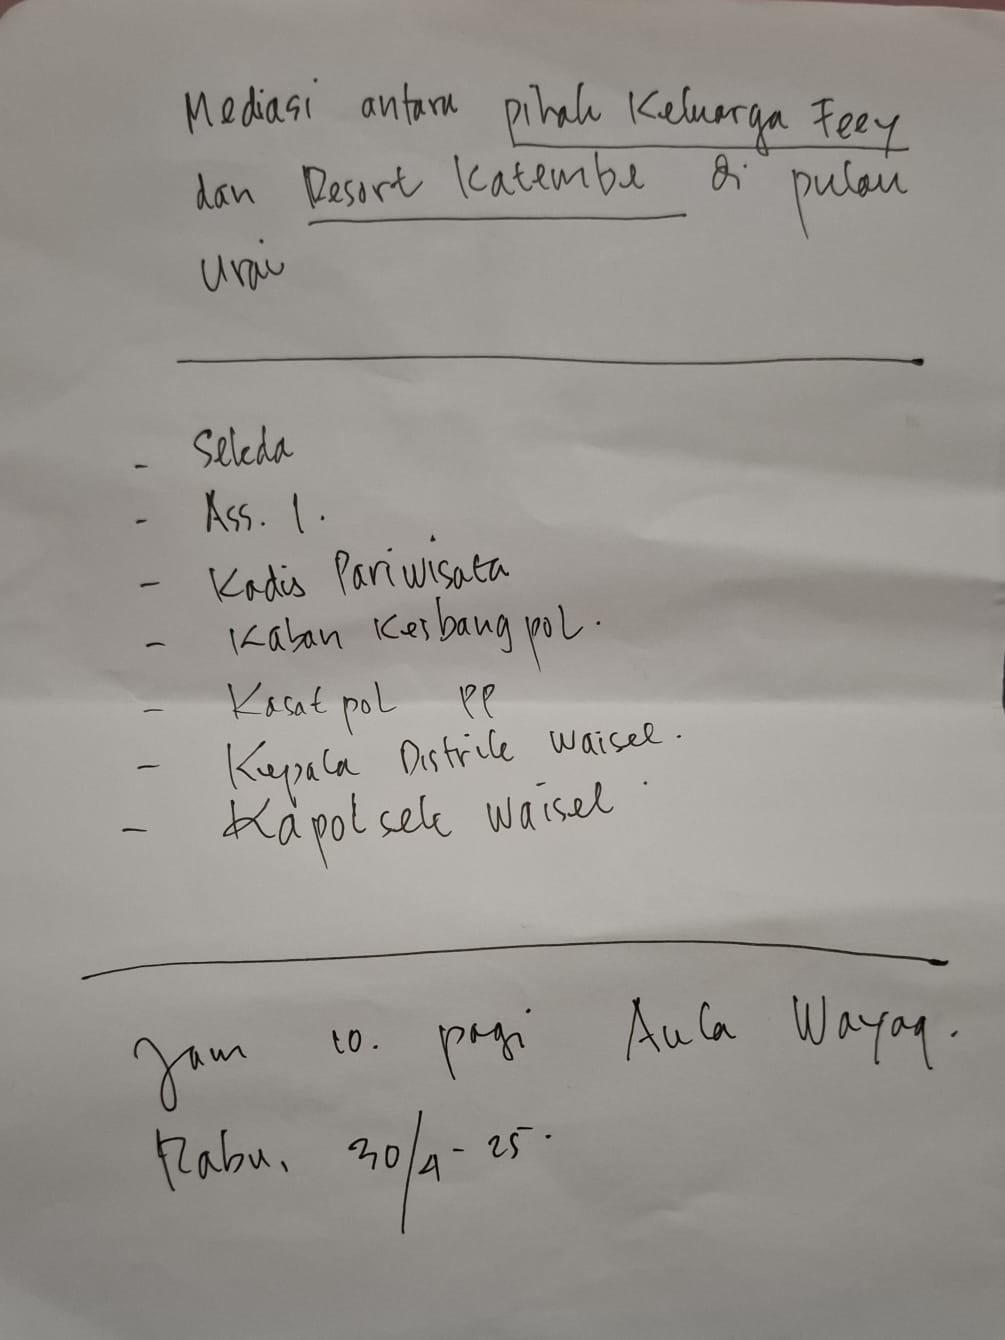 Mediasi antara pihak Keluarga Feey
dan Resort Katembe di pulau
Urai
- Sekda
- Ass. 1.
- Kadis Pariwisata
- Kaban Kesbang pol.
- Kasat pol PP
- Kepala Distrik Waisel.
- Kapolsek Waisel.
Jam 10. pagi Aula Wayag.
Rabu, 30/4-25.